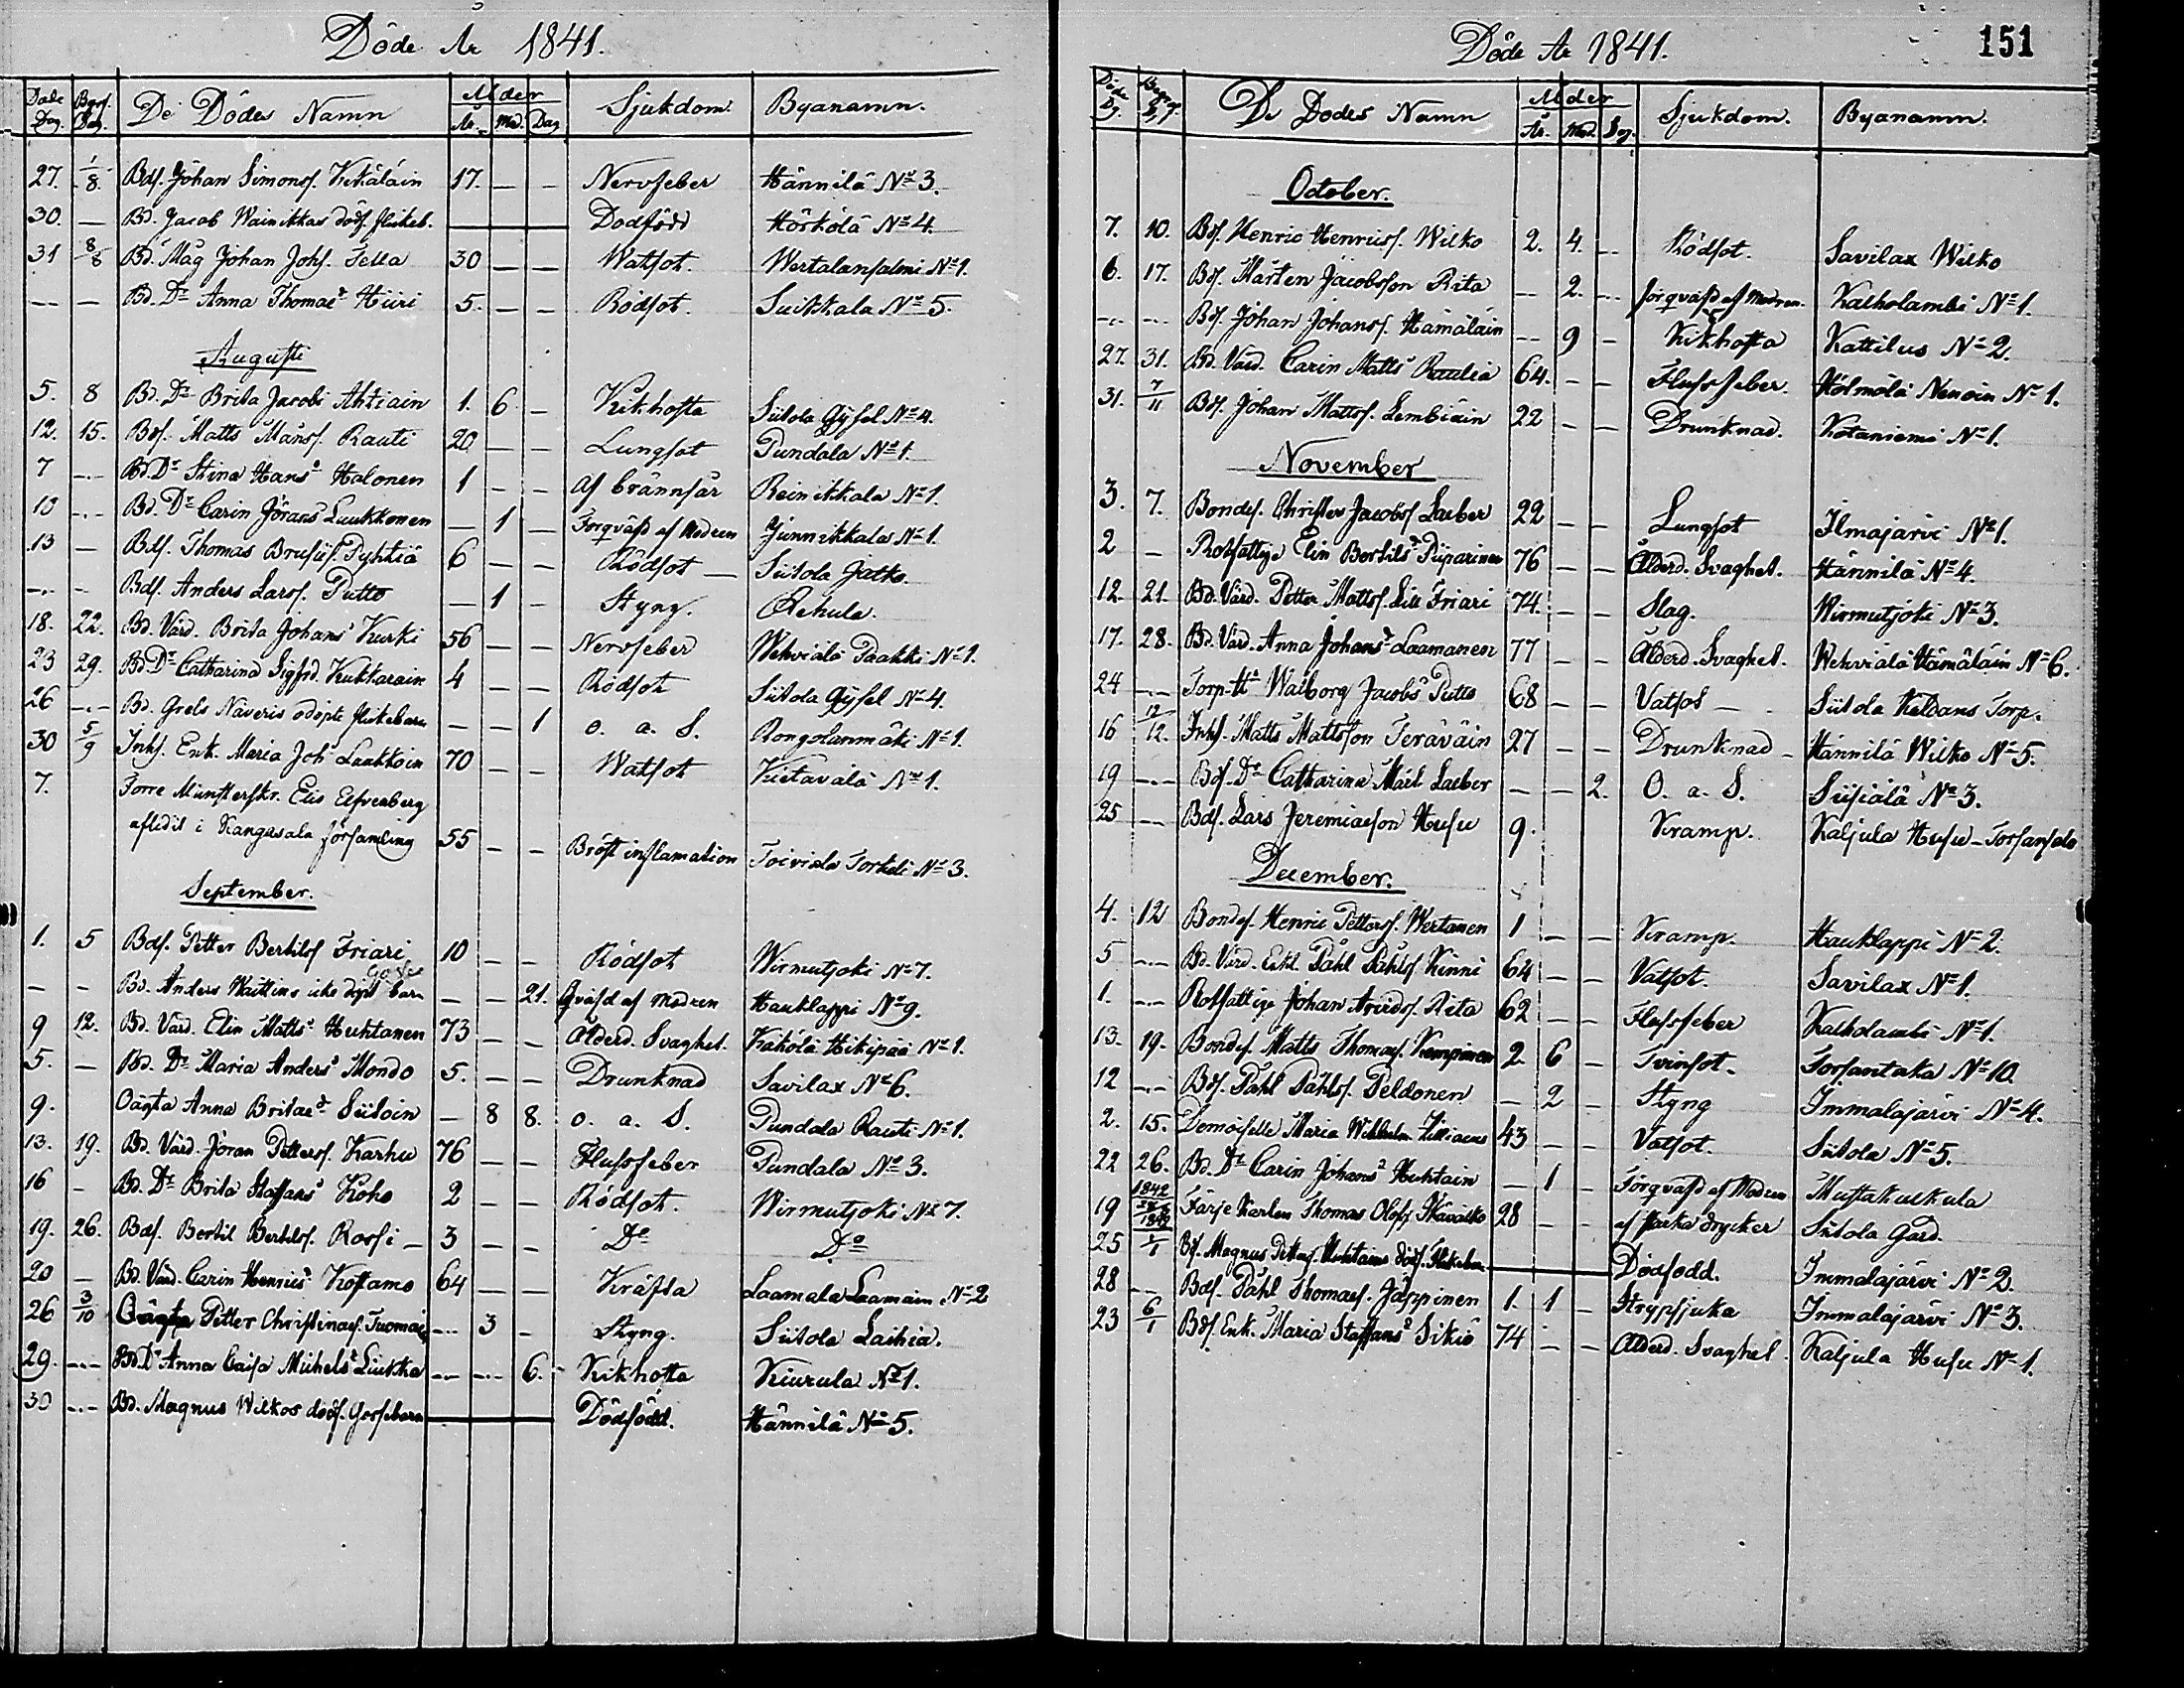 Döde År 1841.
Döde Dag. Begr. Dag. De Dödes Namn Ålder År. Må. Dag Sjukdom. Byanamn.
27. 1/8. Bds. Johan Simonss. Kekäläin 17. — — Nervfeber Hännilä No 3.
30. — Bd. Jacob Wainikkas dödf. flickeb. — Dödfödd Hörkölä No 4.
31 8/8 Bd. Måg Johan Johs. Tella 30 — — Watsot. Wertalansalmi No 1.
-- — Bd. Dr Anna Thomaedr Hiiri 5. — — Rödsot. Suikkala No 5.
Augusti
5. 8 Bd. Dr Brita Jacobs Ahtiain 1. 6 — Kikhosta Siitola Gysel No 4.
12. 15. Bds. Matts Månss. Rauti 20 — — Lungsot Pundala No 1.
7 -.- Bd. Dr Stina Hansdr Halonen 1 — — af brännsår Reinikkala No 1.
10 -.- Bd. Dr Carin Jörans Luukkonen — 1 — Förqväfd af Modren Junnikkala No 1.
13 — Bds. Thomas Brusiis. Pyhtiä 6 — — Rödsot — Siitola Jatko
-.- - Bds. Anders Larss. Putto — 1 — Styng. Rehula.
18. 22. Bd. Värd. Brita Johans Kurki 56 — — Nervfeber Wehviälä Paakki No 1.
23 29. Bd. Dr Catharina Sigfrd. Kukkarain 4 — — Rödsot Siitola Gysel No 4.
26 -.- Bd. Grels Näveris odöpte flickebarn — — 1 o. a. S. Rongolanmäki No 1.
30 5/9 Inhs. Enk. Maria Johdr Laakkoin 70 — — Watsot Kietavälä No 1.
7. Förre Münsterskr. Elis Elfvenberg
afledit i Kangasala församling 55 — — Bröst inflamation Toiviala Torkeli No 3.
September.
1. 5 Bds. Petter Bertilss Friari 10 — — Rödsot Wirmutjoki No 7.
- - Bd. Anders Waittins icke döpt Gosse barn — — 21. qväfd af modren Hauklappi No 9.
9 12. Bd. Värd. Elin Mattsdr Huhtanen 73 — — Ålderd. Svaghet. Käkölä Hikipää No 1.
5. — Bd. Dr Maria Andersdr Mondo 5. — — Drunknad Savilax No 6.
9. Oägta Anna Britaedr Siitoin — 8 8. o. a. S. Pundala Rauti No 1.
13. 19. Bd. Värd. Jöran Petterss. Karhu 76 — — Flussfeber Pundala No 3.
16 - Bd. Dr Brita Staffans Koho 2 — — Rödsot. Wirmutjoki No 7.
19. 26. Bds. Bertil Bertilss. Rossi — 3 — — Do Do
20 — Bd. Värd. Carin Henricsdr Kostamo 64 — — Kräfta Laamala Laamain No 2
26 3/10 Oägta Petter Christinaes. Tuomain -- 3 — Styng. Siitola Laihia.
29. -.- Bd. Dr Anna Caisa Michelsdr Liukka -- -- 6. Kikhosta Kiurula No 1.
30 -.- Bd. Magnus Wilkos dödf. Gossebarn — Dödfödd. Hännilä No 5.
Döde År 1841. 151
Döde Dg. Begrf. Dg. De Dödes Namn Ålder År. Må. Dag. Sjukdom. Byanamn.
October.
7. 10. Bds. Henric Henricss. Wilko 2. 4. -- Rödsot. Savilax Wilko
6. 17. Bds. Mårten Jacobsson Rita -- 2. -- förqväfd af Modren. Kalholambi No 1.
-.- -.- Bds. Johan Johanss. Hämäläin -- 9 — Kikhosta Kattilus No 2.
27. 31. Bd. Värd. Carin Matts Raulia 64. - — Flussfeber. Hölmölä Nenoin No 1.
31. 7/11 Bds. Johan Mattss. Lembiäin 22 — — Drunknad. Kotaniemi No 1.
November
3. 7. Bondes. Christer Jacobss Laeber 22 — — Lungsot Ilmajärvi No 1.
2 - Rotfattige Elin Bertilsdr Piiparinen 76 — — Ålderd. Svaghet. Hännilä No 4.
12. 21. Bd. Värd. Petter Mattss. Lill Friari 74. — — Slag. Wirmutjoki No 3.
17. 28. Bd. Värd. Anna Johansdr Laamanen 77 — — Ålderd. Svaghet. Wehviälä Hämäläin No 6.
24 -.- Torp. Ha Walborg Jacobs Putto 68 — — Vatsot — Siitola Keldans Torp.
16 12/12. Inhs. Matts Mattsson Teräväin 27 — — Drunknad — Hännilä Wilko No 5.
19 -.- Bds. Dr Catharina Mårt Laeber — — 2. O. a. S. Siisiälä No 3.
25 -- Bds. Lars Jeremiaeson Husu 9. Kramp. Kaljula Husu - Torsansalo
December.
4. 12 Bondes. Henric Petterss. Wertanen 1 — — Kramp. Hauklappi No 2.
5 -.- Bd. Värd. Enkl. Påhl Påhlss Kinni 64 — — Vatsot. Savilax No 1.
1. -.- Rotfattige Johan Arvidss. Rita 62 — — Flussfeber Kalholambi No 1.
13. 19. Bondes. Matts Thomaes. Kempinen 2. 6 — Tvinsot. Torsantaka No 10.
12 -.- Bds. Påhl Påhlss. Peldonen — 2 — Styng Immalajärvi No 4.
2. 15. Demoiselle Maria Wilhelm. Zilliacus 43 — — Vatsot. Siitola No 5.
22 26. Bd. Dr Carin Johansdr Huhtain — 1 — Förqväfd af Modren Mustakulkula
19 1842 Färje Karlen Thomas Olofs. Häväkko 28 — — af starka drycker Siitola Gård.
25 1842 1/1 Bds. Magnus Petters. Huhtains dödf. Flickebarn — Dödfödd. Immalajärvi No 2.
28 -- Bds. Påhl Thomaes. Jäppinen 1. 1 — Strypsjuka Immalajärvi No 3.
23 6/1 Bds. Enk. Maria Staffansdr Sikiö 74 — — Ålderd. Svaghet. Kaljula Husu No 1.